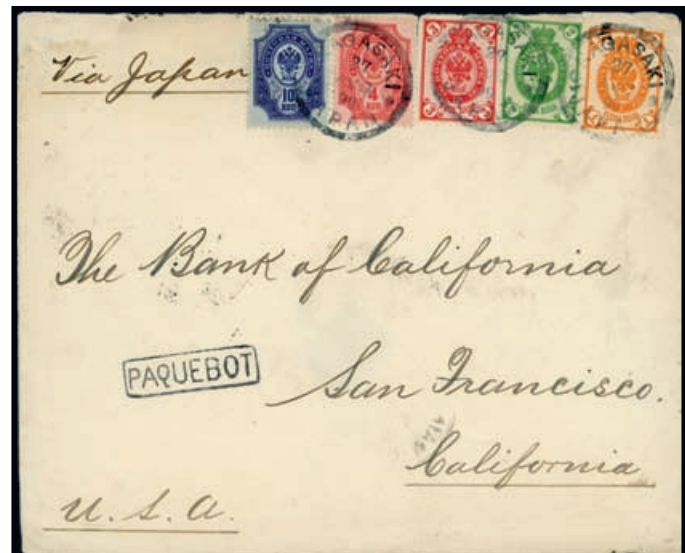 Via Japan
10
3
GASAKI
JAPAN
GASAKI
The Bank of California
PAQUEBOT
San Francisco.
California
U. S. A.